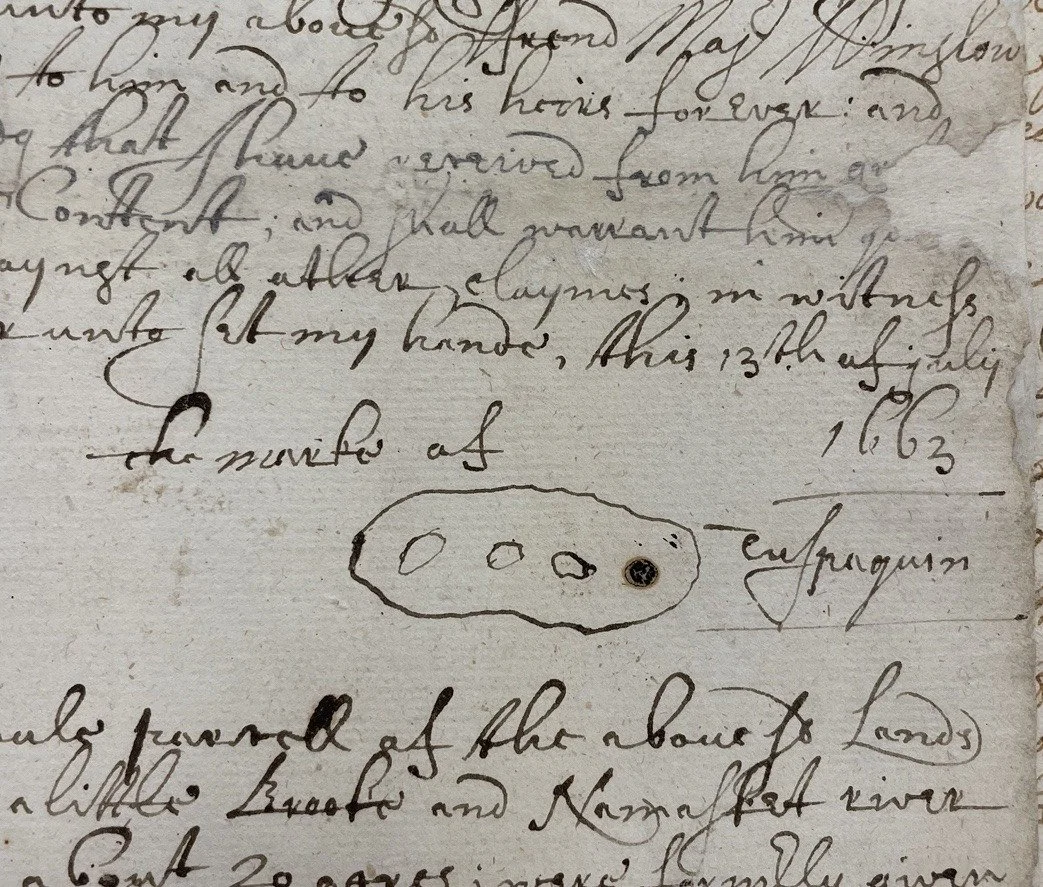 unto my aboue sd frend Maj Winslow
to him and to his heires for ever : and
that I haue received from him
Content ; and shall warrant him
aynst all other claymes ; in witness
unto set my hande , this 13th of july
the marke of 1663
Tuspaquin
parcell of the aboue sd Lands
a little Brooke and Namasket river
about 20 acres ; were formerly given